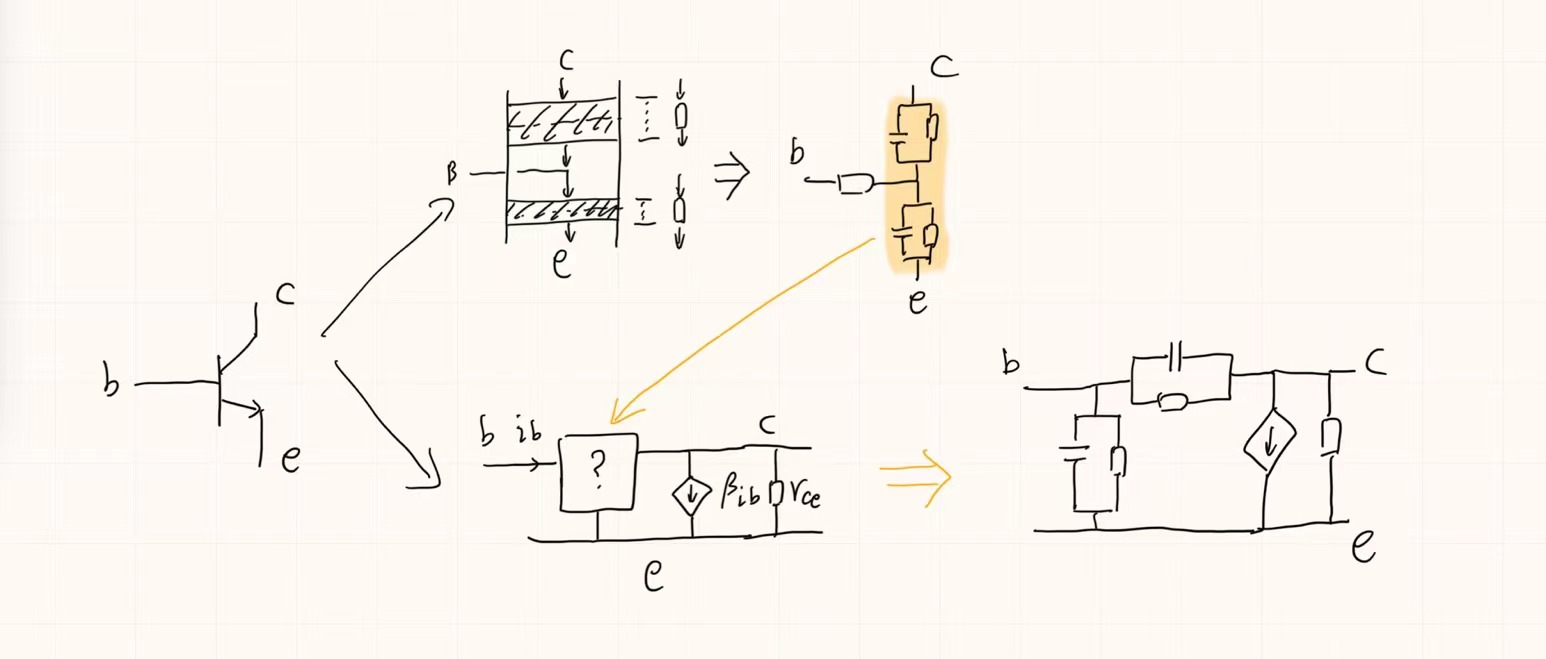 C
B
e
b
C
e
b
C
e
b ib
?
C
βib
rce
e
b
C
e